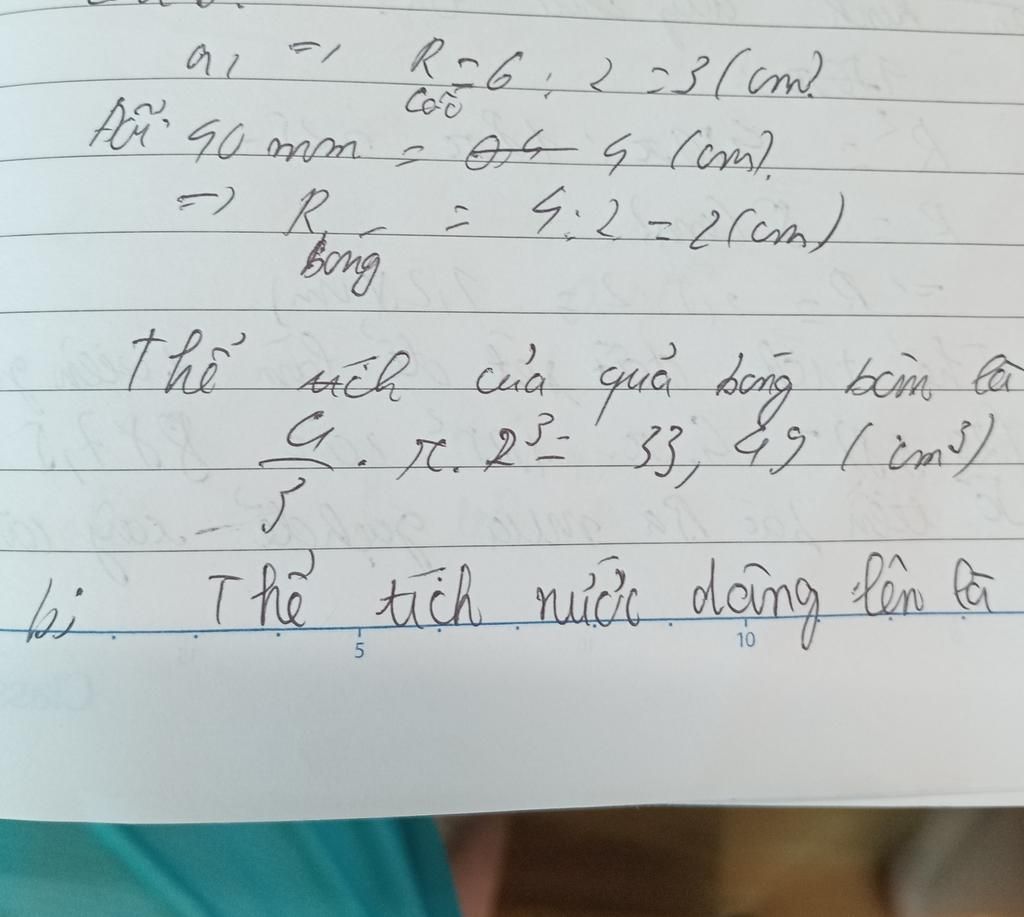 a, => R = 6 : 2 = 3 (cm)
cốc
Đổi 40 mm = 0,4 4 (cm).
=> R bóng = 4 : 2 = 2 (cm)
Thể tích của quả bóng bàn là
4/3 . π. 2³ = 33,49 (cm³)
b, Thể tích nước dâng lên là
5 10